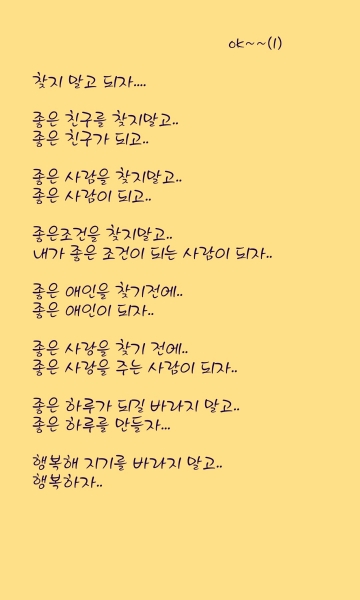 ok~~(1)
찾지 말고 되자....
좋은 친구를 찾지말고..
좋은 친구가 되고..
좋은 사람을 찾지말고..
좋은 사람이 되고..
좋은조건을 찾지말고..
내가 좋은 조건이 되는 사람이 되자..
좋은 애인을 찾기전에..
좋은 애인이 되자..
좋은 사랑을 찾기 전에..
좋은 사랑을 주는 사람이 되자..
좋은 하루가 되길 바라지 말고..
좋은 하루를 만들자...
행복해 지기를 바라지 말고..
행복하자..